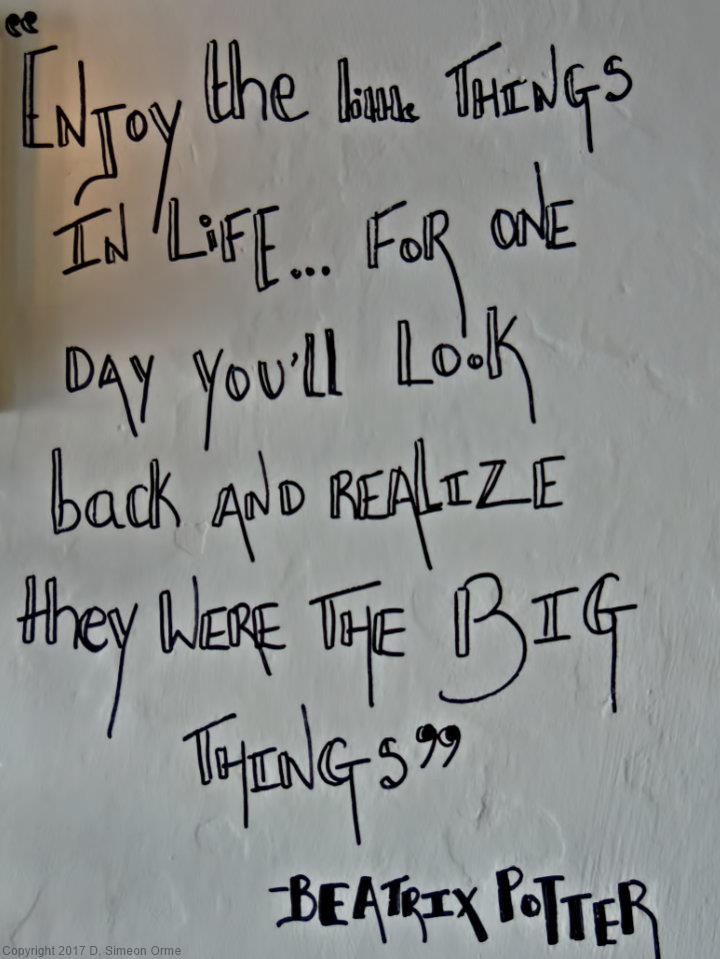 “ENJOY the little THINGS
IN LiFE... FoR ONE
DAY YOU'll LOOK
back AND REALIZE
they WERE THE BIG
THINGS”
-BEATRIX POTTER
Copyright 2017 D. Simeon Orme